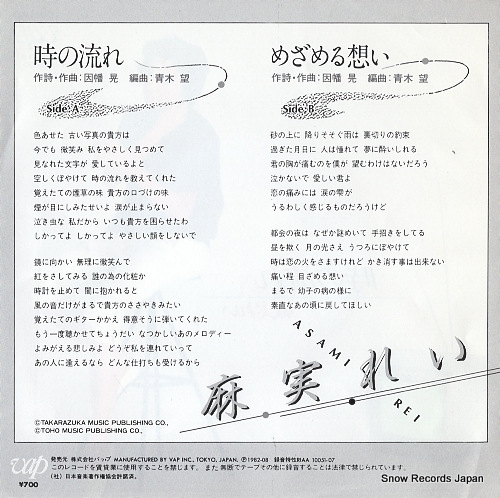 時の流れ
作詩・作曲：因幡 晃　編曲：青木 望
Side: A
色あせた 古い写真の貴方は
今でも 微笑み 私をやさしく見つめて
見なれた文字が 愛しているよと
空しくぼやけて 時の流れを教えてくれた
覚えたての煙草の味 貴方の口づけの味
煙が目にしみたせいよ 涙が止まらない
泣き虫な 私だから いつも貴方を困らせたわ
しかってよ しかってよ やさしい顔をしないで
鏡に向かい 無理に微笑んで
紅をさしてみる 誰の為の化粧か
時計を止めて 闇に抱かれると
風の音だけがまるで貴方のささやきみたい
覚えたてのギターかかえ 得意そうに弾いてくれた
もう一度聴かせてちょうだい なつかしいあのメロディー
よみがえる悲しみよ どうぞ私を連れていって
あの人に逢えるなら どんな仕打ちも受けるから
めざめる想い
作詩・作曲：因幡 晃　編曲：青木 望
Side: B
砂の上に 降りそそぐ雨は 裏切りの約束
過ぎた月日に 人は憧れて 夢に酔いしれる
君の胸が痛むのを僕が 望むわけはないだろう
泣かないで 愛しい君よ
恋の痛みには 涙の雫が
うるわしく感じるものだろうけど
都会の夜は なぜか謎めいて 手招きをしてる
昼を欺く 月の光さえ うつろにぼやけて
時は恋の火をさますけれど かき消す事は出来ない
痛い程 目ざめる想い
まるで 幼子の病の様に
素直なあの頃に戻してほしい
ASAMI
麻実れい
REI
©TAKARAZUKA MUSIC PUBLISHING CO.,
©TOHO MUSIC PUBLISHING CO.,
vap
¥700
発売元 株式会社バップ MANUFACTURED BY VAP INC., TOKYO, JAPAN. Ⓟ1982・08 録音特性RIAA 10051-07
このレコードを賃貸業に使用することを禁じます。また無断でテープその他に録音することは法律で禁じられています。
（社）日本音楽著作権協会許諾済。
Snow Records Japan